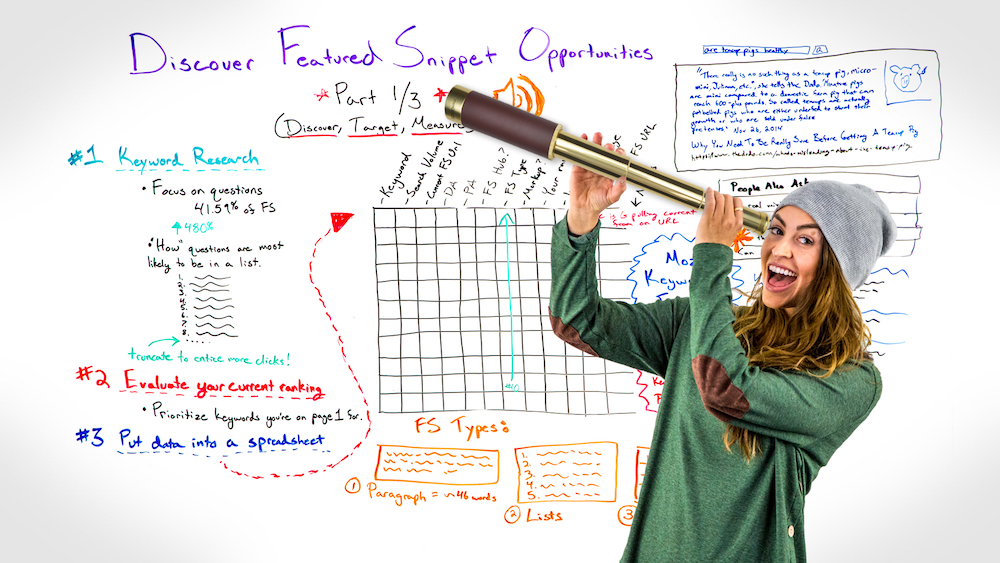 Discover Featured Snippet Opportunities
Part 1/3
(Discover, Target, Measure
#1 Keyword Research
• Focus on questions
41.59% of FS
480%
• "How" questions are most
likely to be in a list.
1.
2.
3.
4.
5.
6.
7.
8.
truncate to entice more clicks!
#2 Evaluate your current ranking
• Prioritize keywords you're on page 1 for.
#3 Put data into a spreadsheet
- Keyword
- Search Volume
- Current FS Url
- DA
- PA
- FS Hub?
- FS Type
- Markup?
- Your
FS URL
is G pulling current
from on URL
Moz
Keyword
FS Types:
① Paragraph = ~46 words
1.
2.
3.
4.
5.
② Lists
③
are teacup pigs healthy
"There really is no such thing as a teacup pig, micro-
mini, Juliana, etc.", she tells the Dodo. "Mature pigs
are mini compared to a domestic farm pig that can
reach 600-plus pounds. So called teacups are actually
potbellied pigs who are either underfed to stunt their
growth or who are sold under false
pretenses." Nov 26, 2014
Why You Need To Be Really Sure Before Getting A Teacup Pig
People Also Ask